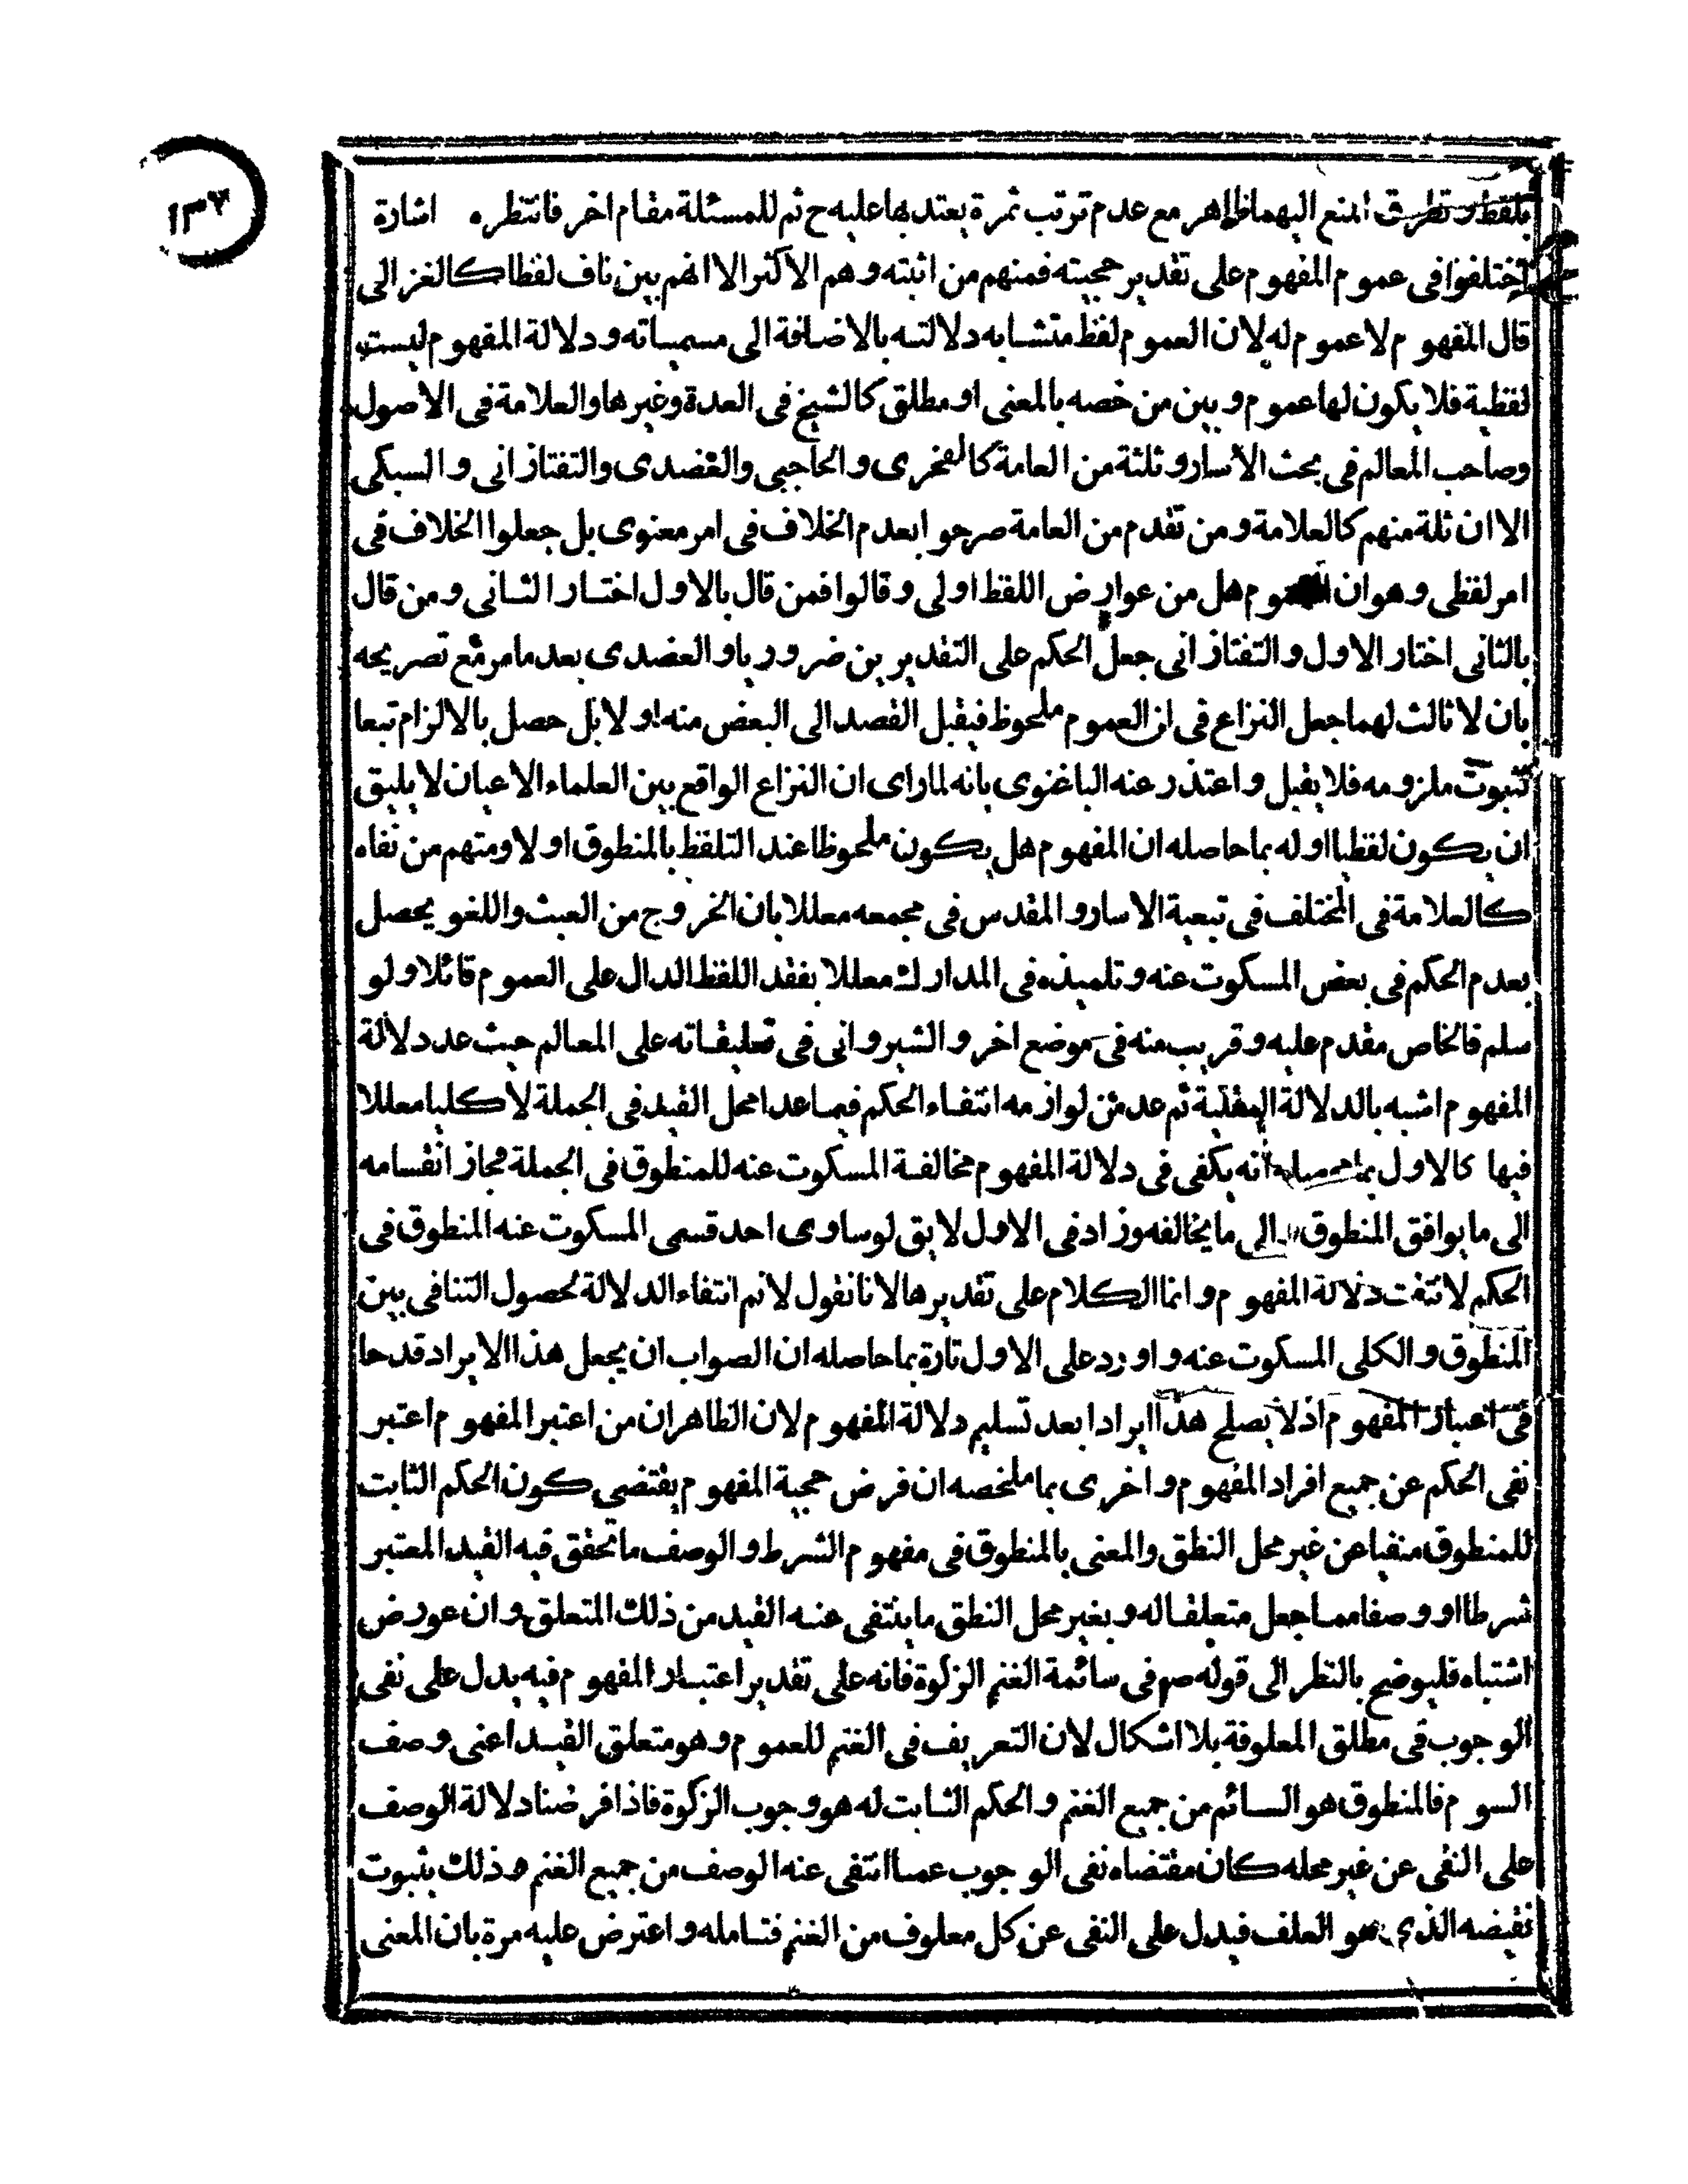 ١٣٧
بلفظ وتطرق المنع اليهما ظاهر مع عدم ترتب ثمرة يعتد بها عليه ح ثم للمسئلة مقام اخر فانتظره اشارة
اختلفوا فى عموم المفهوم على تقدير حجيته فمنهم من اثبته وهم الاكثر الا انهم بين ناف لفظا كالغزالى
قال المفهوم لا عموم له لان العموم لفظ متشابه دلالته بالاضافة الى مسمياته ودلالة المفهوم ليست
لفظية فلا يكون لها عموم وبين من خصه بالمعنى او مطلق كالشيخ فى العدة وغيرها والعلامة فى الاصول
وصاحب المعالم فى بحث الاسار وثلثة من العامة كالفخرى والحاجبى والعضدى والتفتازانى والسبكى
الا ان ثلة منهم كالعلامة ومن تقدم من العامة صرحوا بعدم الخلاف فى امر معنوى بل جعلوا الخلاف فى
امر لفظى وهو ان العموم هل من عوارض اللفظ اولى وقالوا فمن قال بالاول اختار الثانى ومن قال
بالثانى اختار الاول والتفتازانى جعل الحكم على التقديرين ضروريا والعضدى بعد ما مر مع تصريحه
بان لا ثالث لهما جعل النزاع فى ان العموم ملحوظ فيقبل القصد الى البعض منه او لا بل حصل بالالزام تبعا
لثبوت ملزومه فلا يقبل واعتذر عنه الباغنوى بانه لما راى ان النزاع الواقع بين العلماء الاعيان لا يليق
ان يكون لفظيا اوله بما حاصله ان المفهوم هل يكون ملحوظا عند التلفظ بالمنطوق او لا ومنهم من نفاه
كالعلامة فى المختلف فى تبعية الاسار والمقدس فى مجمعه معللا بان الخروج من العبث واللغو يحصل
بعدم الحكم فى بعض المسكوت عنه وتلميذه فى المدارك معللا بفقد اللفظ الدال على العموم قائلا ولو
سلم فالخاص مقدم عليه وقريب منه فى موضع اخر والشيروانى فى تعليقاته على المعالم حيث عد دلالة
المفهوم اشبه بالدلالة العقلية ثم عد من لوازمه انتفاء الحكم فيما عدا محل القيد فى الجملة لا كليا معللا
فيها كالاول بما حصله انه يكفى فى دلالة المفهوم مخالفة المسكوت عنه للمنطوق فى الجملة فجاز انقسامه
الى ما يوافق المنطوق والى ما يخالفه وزاد فى الاول لا يق لو ساوى احد قسمى المسكوت عنه المنطوق فى
الحكم لانتفت دلالة المفهوم وانما الكلام على تقديرها لانا نقول لا نم انتفاء الدلالة لحصول التنافى بين
المنطوق والكلى المسكوت عنه واورد على الاول تارة بما حاصله ان الصواب ان يجعل هذا الايراد قدحا
فى اعتبار المفهوم اذ لا يصلح هذا ايرادا بعد تسليم دلالة المفهوم لان الظاهر ان من اعتبر المفهوم اعتبر
نفى الحكم عن جميع افراد المفهوم واخرى بما ملخصه ان فرض حجية المفهوم يقتضى كون الحكم الثابت
للمنطوق منفيا عن غير محل النطق والمعنى بالمنطوق فى مفهوم الشرط والوصف ما تحقق فيه القيد المعتبر
شرطا او وصفا مما جعل متعلقا له وبغير محل النطق ما ينتفى عنه القيد من ذلك المتعلق وان عورض
اشتباه فليوضح بالنظر الى قوله صم فى سائمة الغنم الزكوة فانه على تقدير اعتبار المفهوم فيه يدل على نفى
الوجوب فى مطلق المعلوفة بلا اشكال لان التعريف فى الغنم للعموم وهو متعلق القيد اعنى وصف
السوم فالمنطوق هو السائم من جميع الغنم والحكم الثابت له هو وجوب الزكوة فاذا فرضنا دلالة الوصف
على النفى عن غير محله كان مقتضاه نفى الوجوب عما انتفى عنه الوصف من جميع الغنم وذلك بثبوت
نقيضه الذى هو العلف فيدل على النفى عن كل معلوف من الغنم فتامله واعترض عليه مرة بان المعنى